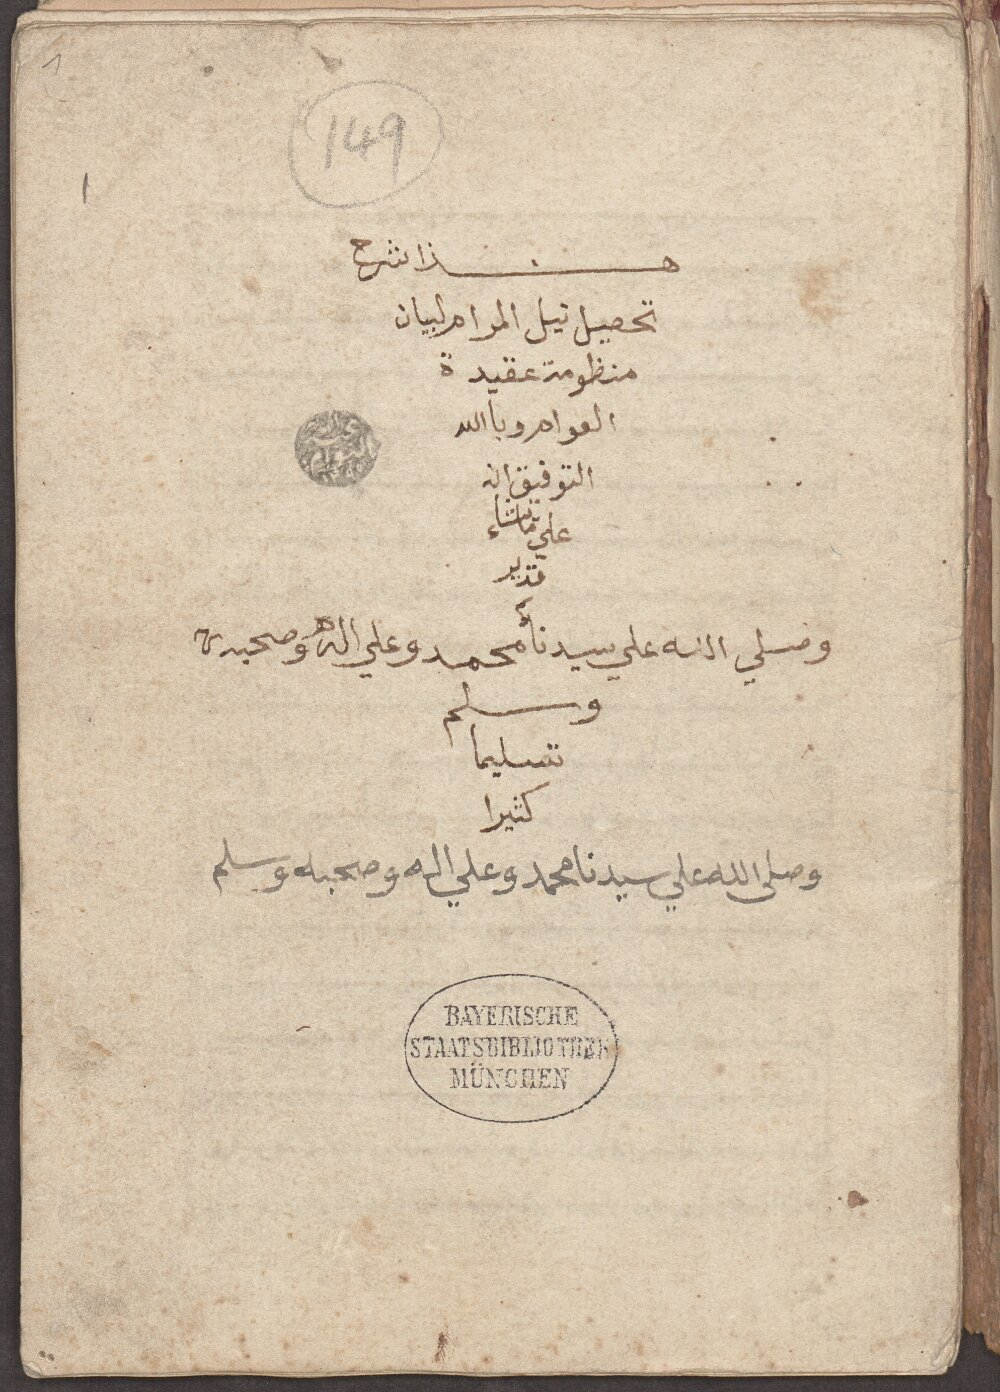 149
1
هذا شرح
تحصيل نيل المرام لبيان
منظومة عقيدة
العوام وبالله
التوفيق انه
علي ما يشاء
قدير
وصلي الله علي سيدنا محمد وعلي اله وصحبه
وسلم
تسليما
كثيرا
وصلى الله علي سيدنا محمد وعلي اله وصحبه وسلم
BAYERISCHE
STAATSBIBLIOTHEK
MÜNCHEN